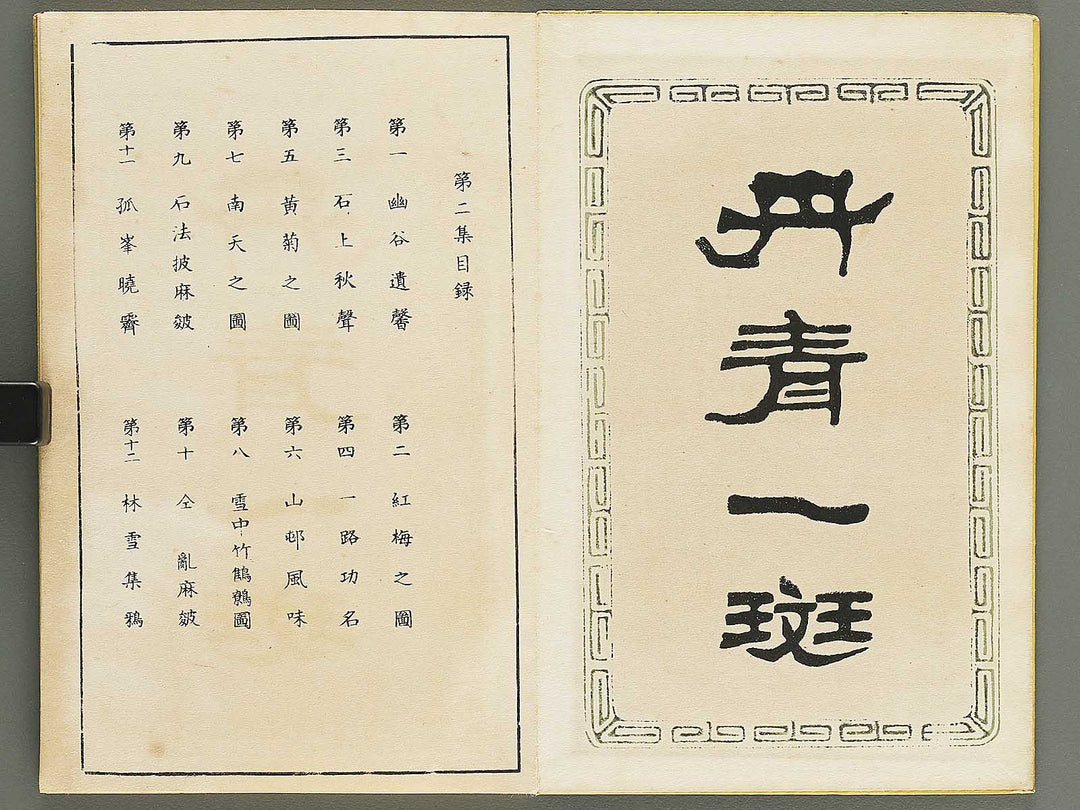 丹青一斑
第二集目録
第一 幽谷遺馨
第二 紅梅之圖
第三 石上秋聲
第四 一路功名
第五 黄菊之圖
第六 山邨風味
第七 南天之圖
第八 雪中竹鷦鷯圖
第九 石法披麻皴
第十 仝 亂麻皴
第十一 孤峯曉霽
第十二 林雪集鴉